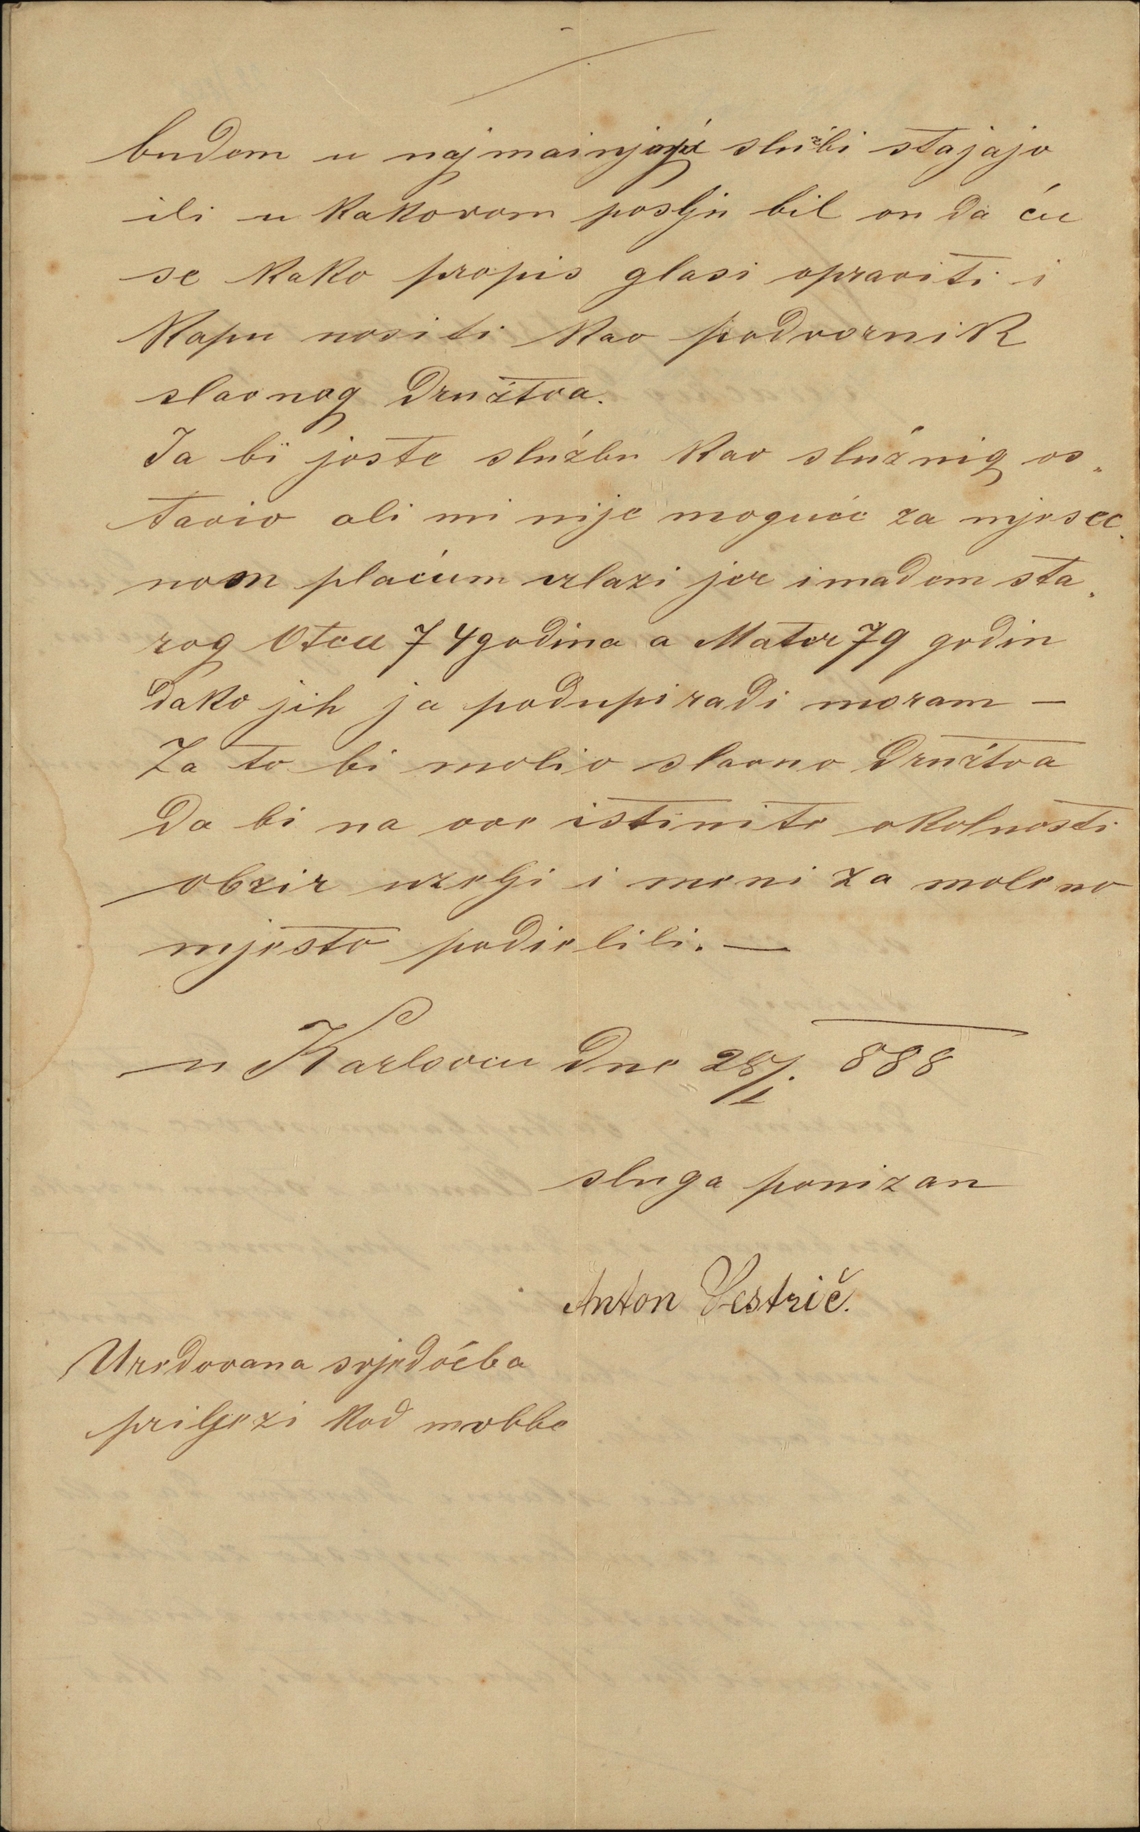 budem u najmainjoj službi stajajo
ili u kakovom poslju bil on da ću
se kako propis glasi opraviti i
kapu nositi kao podvornik
slavnog Družtva.
Ja bi jošte službu kao služnig os„
tavio ali mi nije moguće za mjesec„
nom plaćum izlazi jer imadem sta„
rog Otca 74 godina a Mater 79 godin
dako jih ja podupiradi moram —
Za to bi molio slavno Družtva
da bi na ove istinite okolnosti
obzir uzelji i meni za moleno
mjesto podielili. —
u Karlovcu dne 28/I. 888
sluga ponizan
Anton Šestrič.
Uredovana svjedočba
priljezi kod molbe